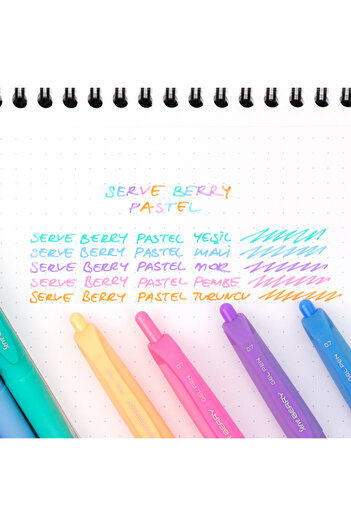 SERVE BERRY
PASTEL
SERVE BERRY PASTEL YEŞİL
SERVE BERRY PASTEL MAVİ
SERVE BERRY PASTEL MOR
SERVE BERRY PASTEL PEMBE
SERVE BERRY PASTEL TURUNCU
Serve
BERRY GEL PEN
Serve BERRY GEL PEN
GEL PEN